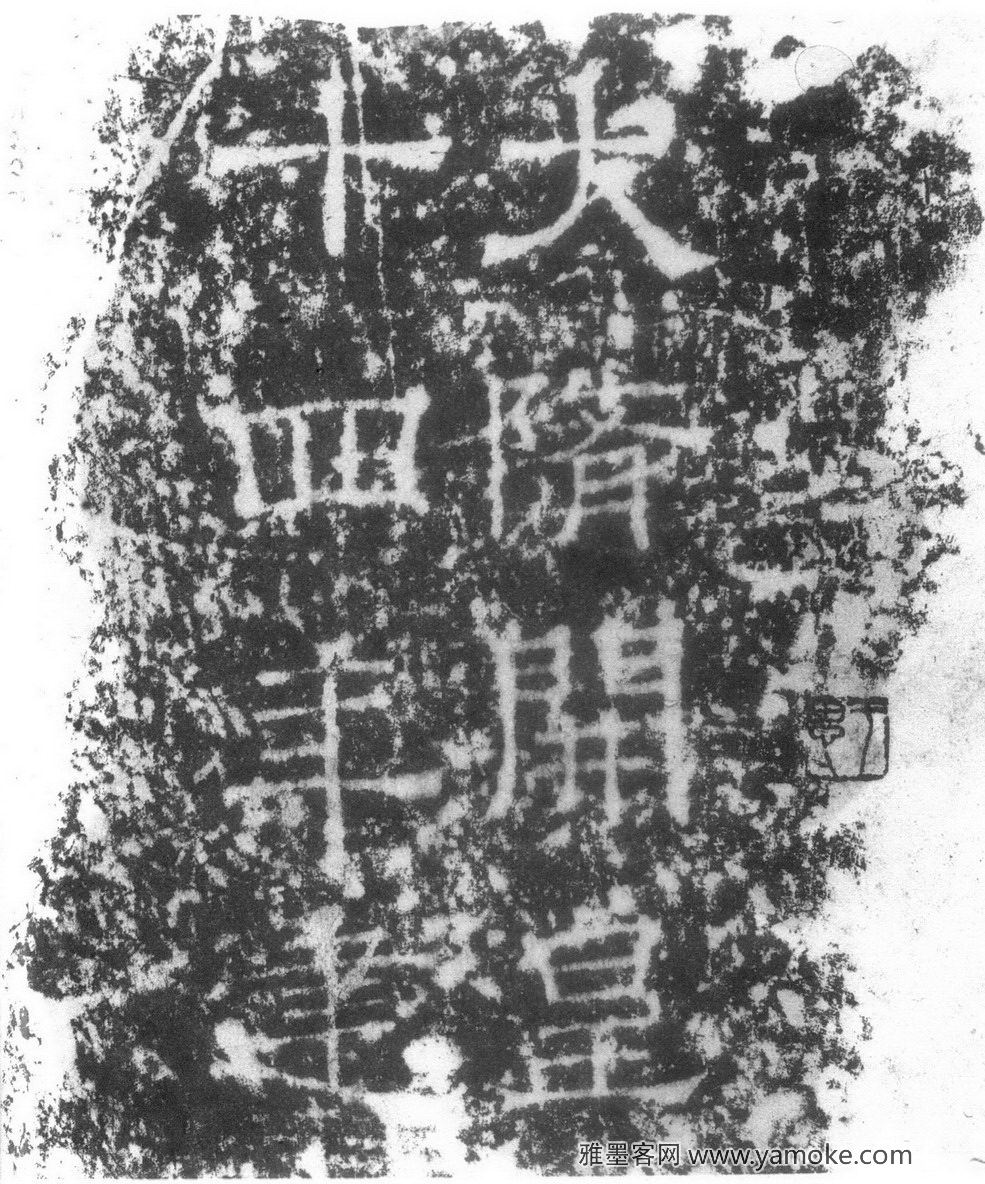 大隋開皇
十四年建
雅墨客网 www.yamoke.com